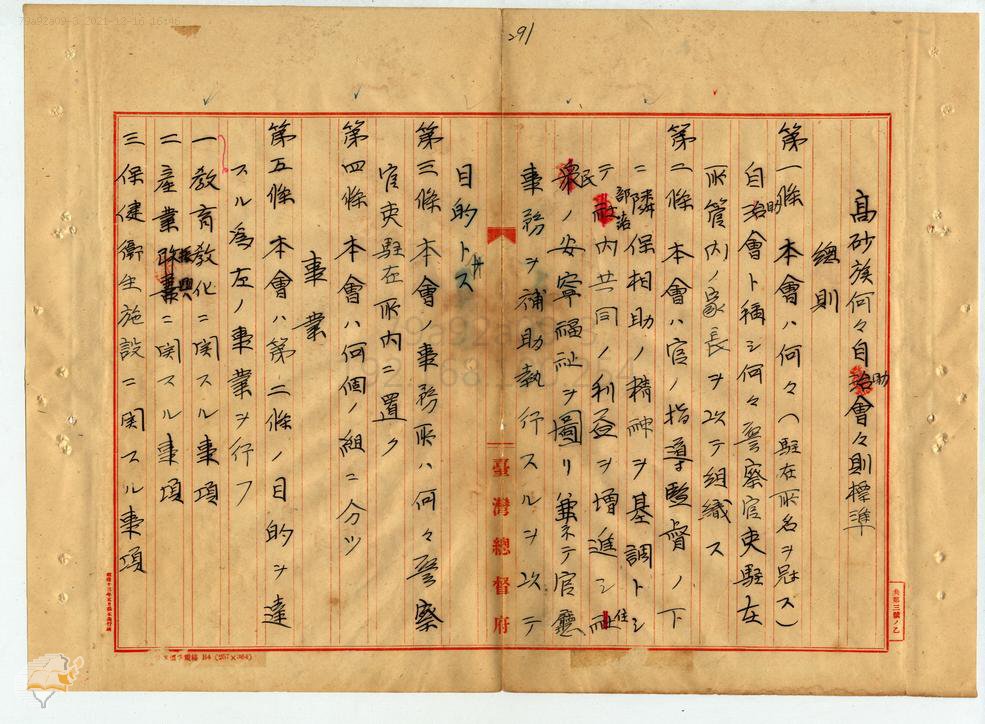 79a92a09-3 2021-12-16 16:46
291
高砂族何々自治助會々則標準
總則
第一條 本會ハ何々(駐在所名ヲ冠ス)
自治助會ト稱シ何々警察官吏駐在
所管內ノ家長ヲ以テ組織ス
第二條 本會ハ官ノ指導監督ノ下
ニ隣保相助ノ精神ヲ基調トシ
テ部落內共同ノ利益ヲ增進シ社住
衆民ノ安寧福祉ヲ圖リ兼ネテ官廳
事務ヲ補助執行スルヲ以テ
目的トス
第三條 本會ノ事務所ハ何々警察
官吏駐在所內ニ置ク
第四條 本會ハ何個ノ組ニ分ツ
事業
第五條 本會ハ第二條ノ目的ヲ達
スル爲左ノ事業ヲ行フ
一 敎育敎化ニ関スル事項
二 產業振興ニ関スル事項
三 保健衞生施設ニ関スル事項
臺灣總督府